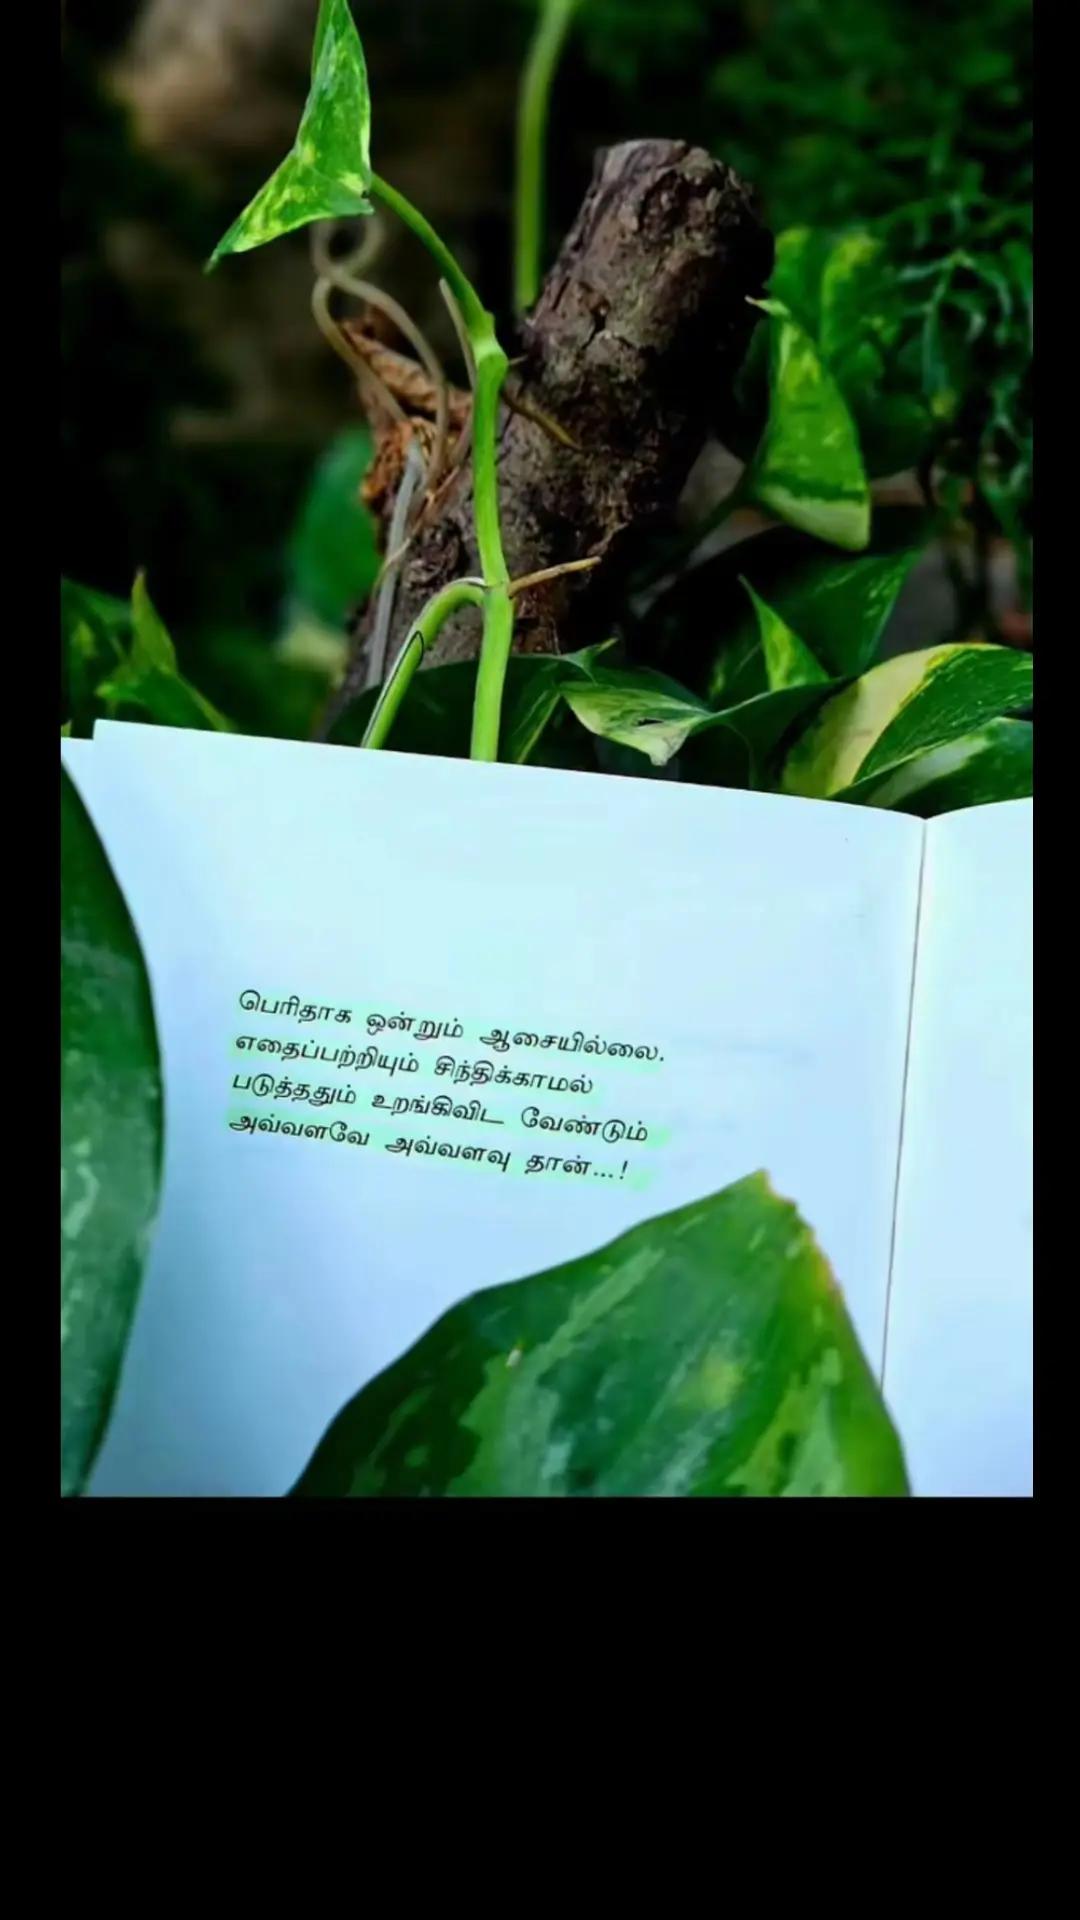 பெரிதாக ஒன்றும் ஆசையில்லை.
எதைப்பற்றியும் சிந்திக்காமல்
படுத்ததும் உறங்கிவிட வேண்டும்
அவ்வளவே அவ்வளவு தான்...!